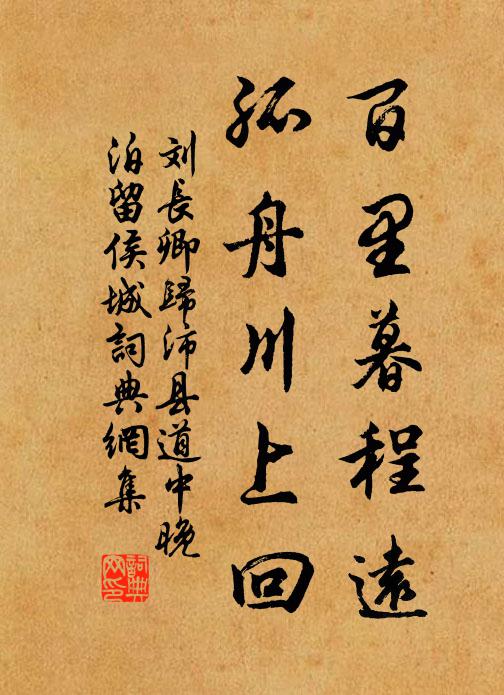 百里暮程遠
孤舟川上回
刘長卿歸沛县道中晚
泊留侯城詞典網集
詞典
网印